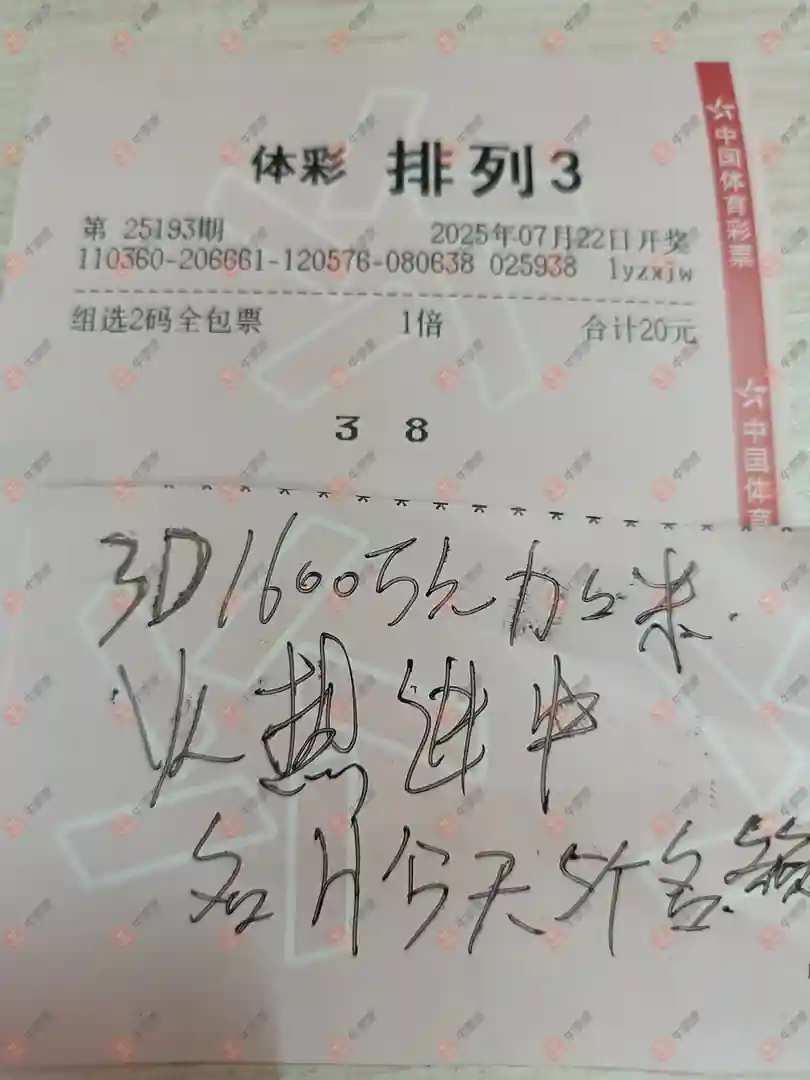 体彩 排列3
第 25193期 2025年07月22日开奖
110360-206661-120576-080638 025938 lyzxjw
组选2码全包票 1倍 合计20元
3 8
中国体育彩票
中国体育
3D1600万元加来
火热继中
今天5个名额